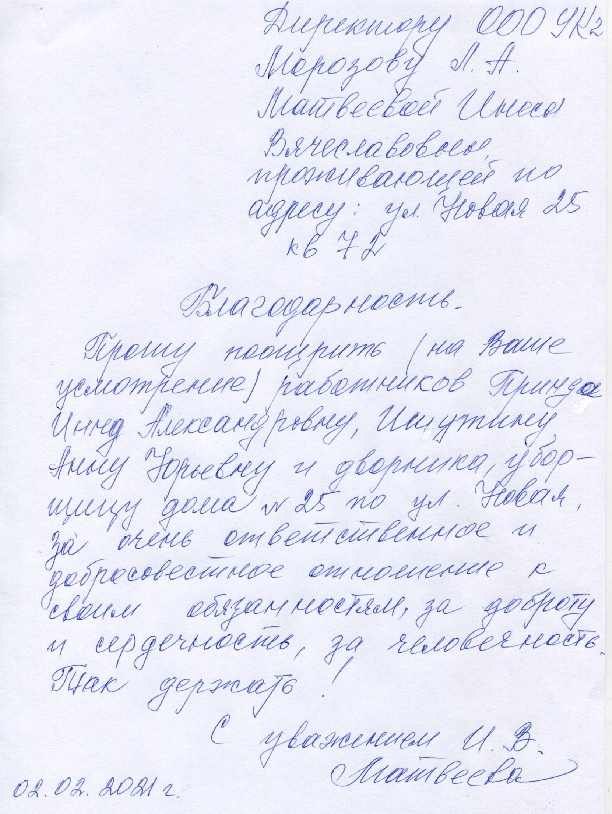 Директору ООО УК2
Морозову Л. А.
Матвеевой Инесы
Вячеславовны,
проживающей по
адресу: ул. Новая 25
кв 72
Благодарность.
Прошу поощрить (на Ваше
усмотрение) работников
Инну Александровну, Ишутину
Анну Юрьевну и дворника, убор-
щицу дома № 25 по ул. Новая,
за очень ответственное и
добросовестное отношение к
своим обязанностям, за доброту
и сердечность, за человечность.
Так держать!
С уважением И. В.
Матвеева
02.02.2021 г.